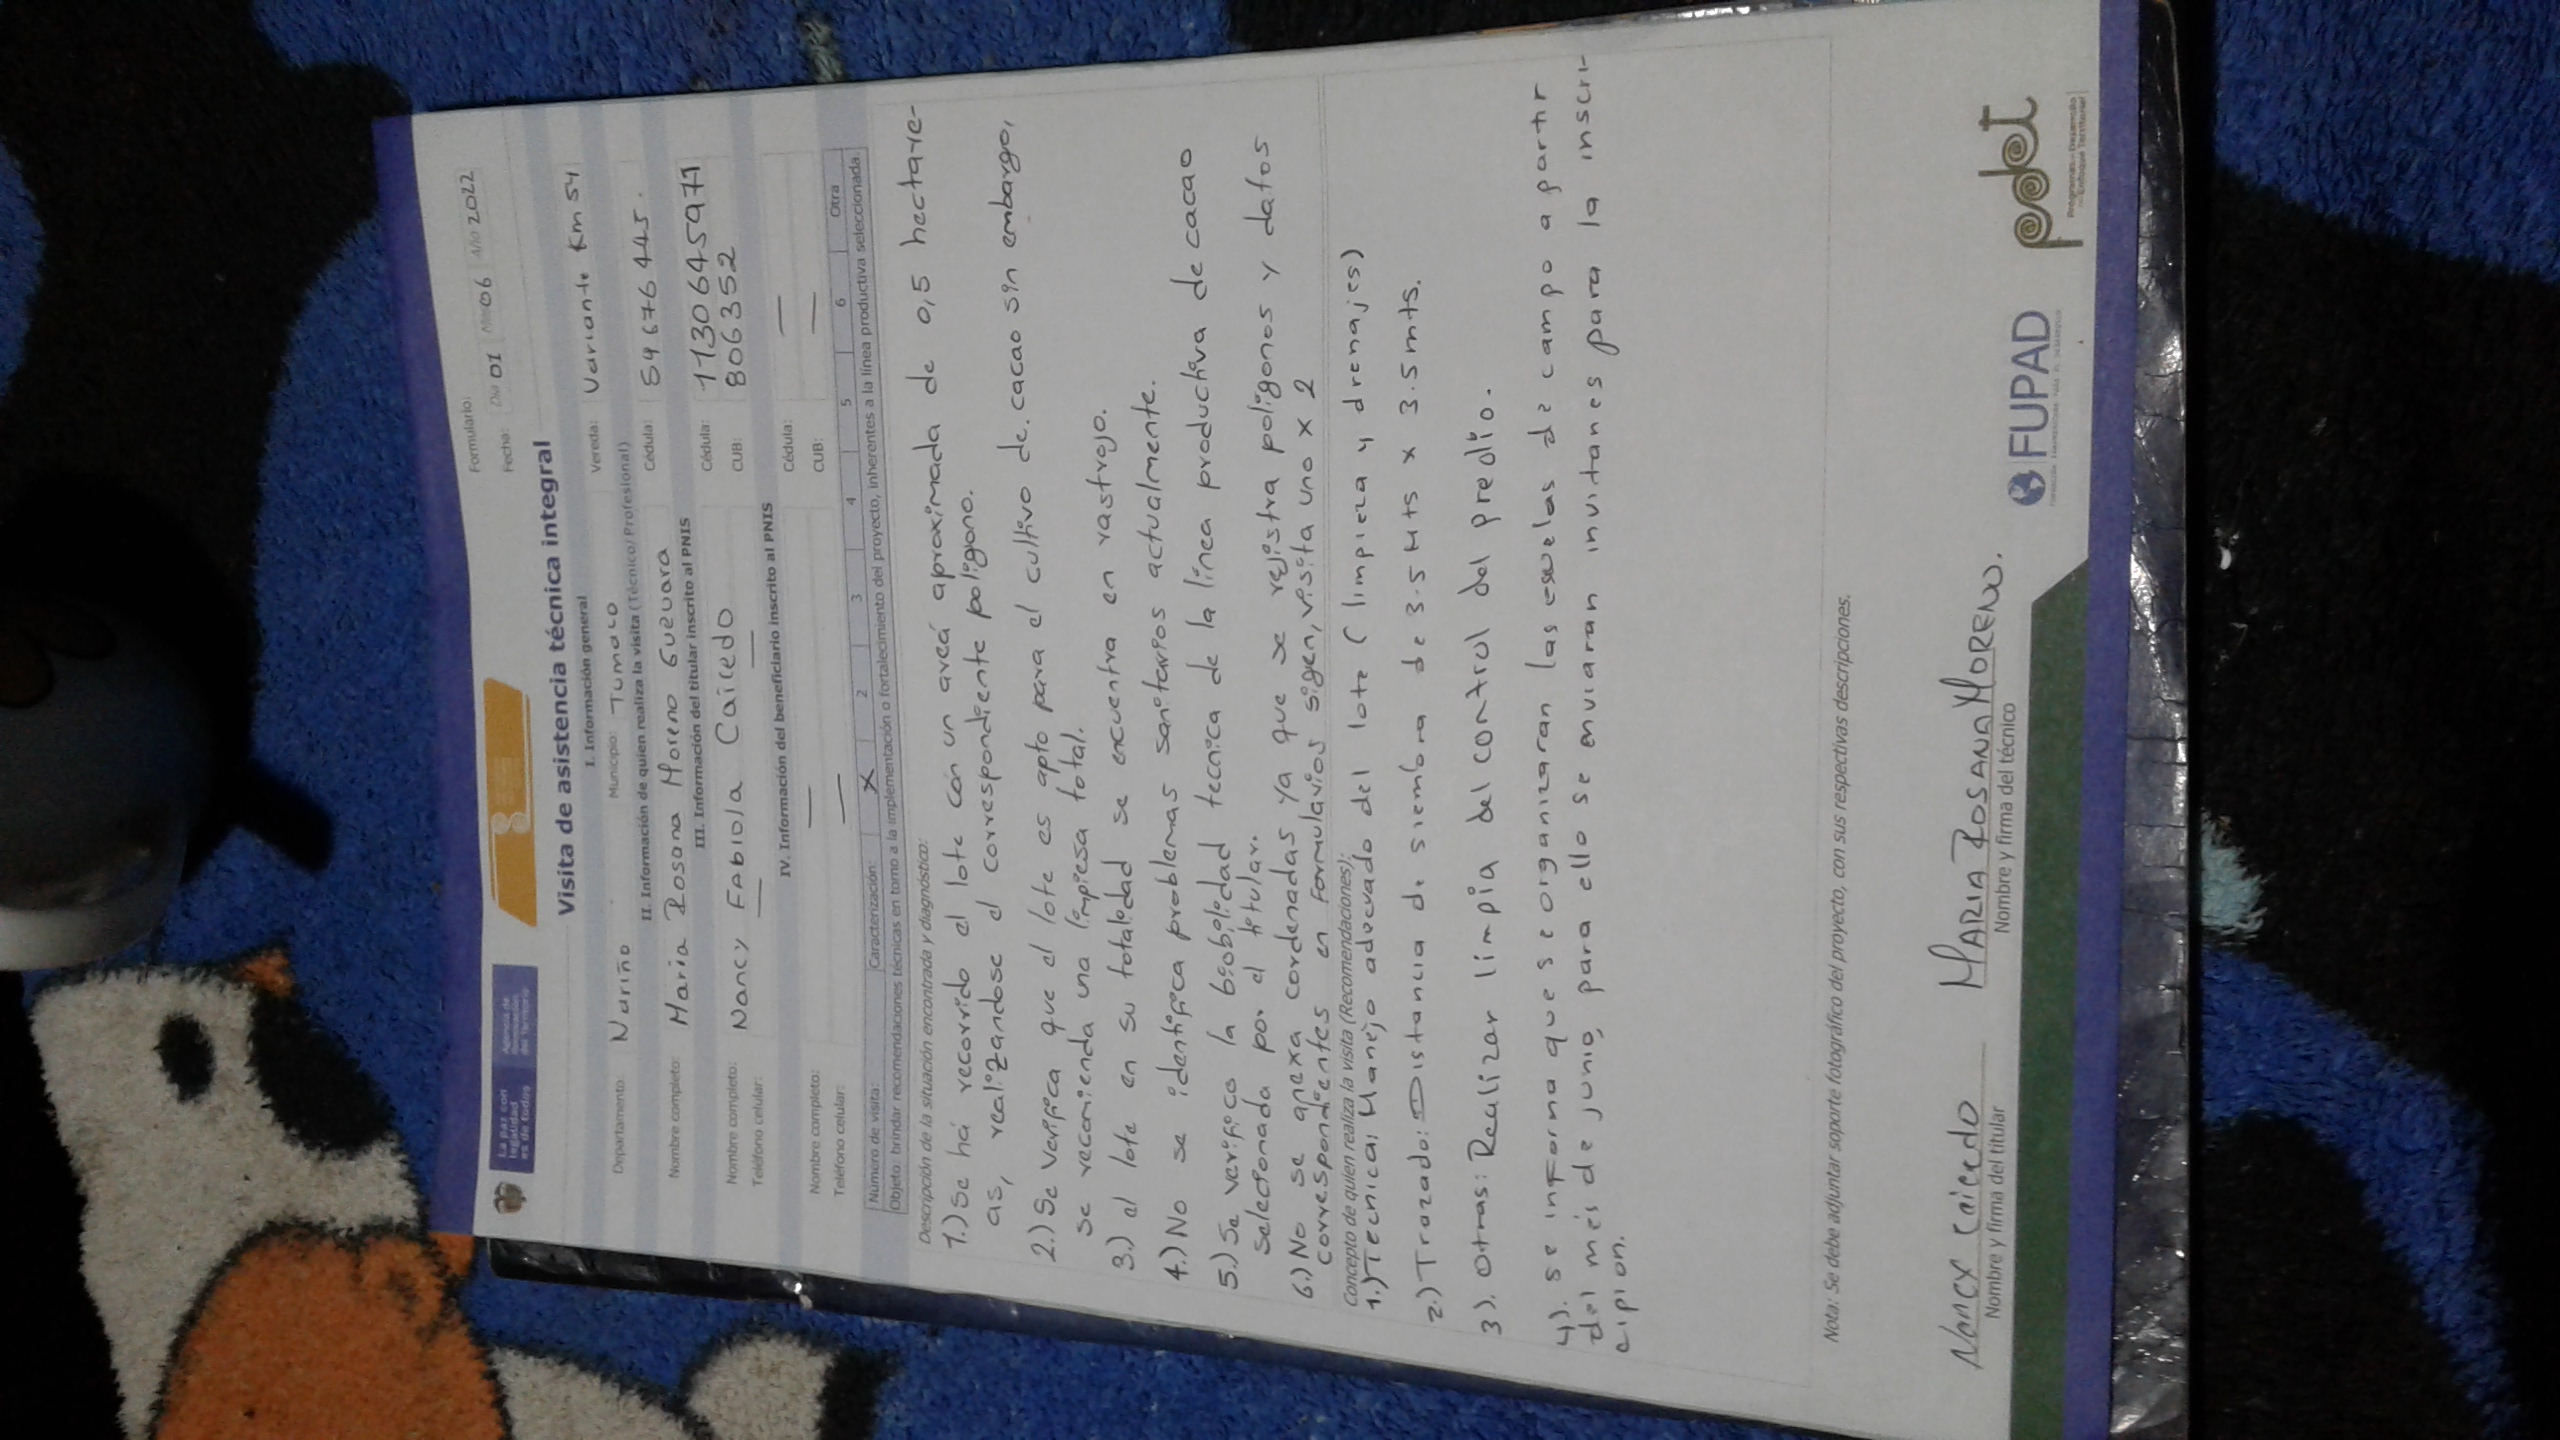 La paz con
legalidad
es de todos
Agencia de
Renovación
del Territorio
Formulario:
Fecha: Día 01 Mes 06 Año 2022
Visita de asistencia técnica integral
I. Información general
Departamento: Nariño Municipio: Tumaco Vereda: Variante Km 54
II. Información de quien realiza la visita (Técnico/Profesional)
Nombre completo: Maria Rosana Moreno Guevara Cédula: 59676445.
III. Información del titular inscrito al PNIS
Nombre completo: Nancy Fabiola Caicedo Cédula: 1130645971
Teléfono celular: — — CUB: 806352
IV. Información del beneficiario inscrito al PNIS
Nombre completo: — Cédula: —
Teléfono celular: — CUB: —
Número de visita: Caracterización: X 2 3 4 5 6 Otra
Objeto: brindar recomendaciones técnicas en torno a la implementación o fortalecimiento del proyecto, inherentes a la línea productiva seleccionada.
Descripción de la situación encontrada y diagnóstico:
1.) Se há recorrido el lote con un areá aproximada de 0,5 hectare-
as, realizandose el correspondiente poligono.
2.) Se verifica que el lote es apto para el cultivo de cacao sin embargo,
se recomienda una limpiesa total.
3.) el lote en su totalidad se encuentra en rastrojo.
4.) No se identifica problemas sanitarios actualmente.
5.) Se verifico la biobilidad tecnica de la línea productiva de cacao
selectonada por el titular.
6.) No se anexa cordenadas ya que se rejistra poligonos y datos
correspondientes en formularios sigen, visita uno x 2
Concepto de quien realiza la visita (Recomendaciones):
1.) Tecnica: Manejo adecuado del lote ( limpieza y drenajes)
2.) Trazado: Distancia de siembra de 3.5 Mts x 3.5 mts.
3). Otras: Realizar limpia del control del predio.
4). se informa que se organizaran las escuelas de campo a partir
del més de junio, para ello se enviaran invitanes para la inscri-
cipion.
Nota: Se debe adjuntar soporte fotográfico del proyecto, con sus respectivas descripciones.
Nancy Caicedo MARIA ROSANA MORENO.
Nombre y firma del titular Nombre y firma del técnico
FUPAD
pdet
Programas de Desarrollo
con Enfoque Territorial